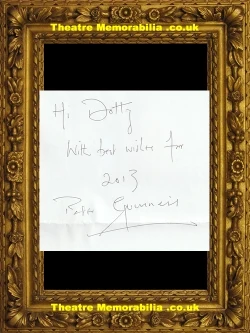 Theatre Memorabilia .co.uk
Hi Dotty
With best wishes for
2013
Guinness
Theatre Memorabilia .co.uk